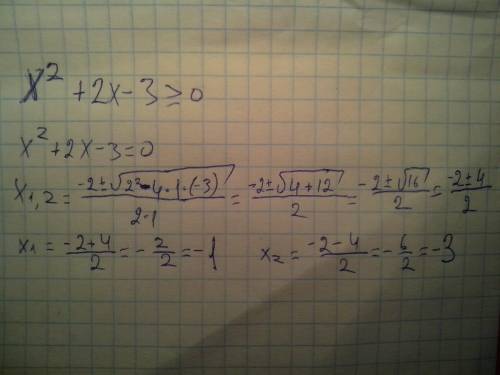 x² + 2x - 3 ≥ 0
x² + 2x - 3 = 0
x₁,₂ = (-2 ± √(2² - 4 · 1 · (-3))) / (2 · 1) = (-2 ± √(4 + 12)) / 2 = - (2 ± √16) / 2 = (-2 ± 4) / 2
x₁ = (-2 + 4) / 2 = - 2/2 = -1 x₂ = (-2 - 4) / 2 = - 6/2 = -3